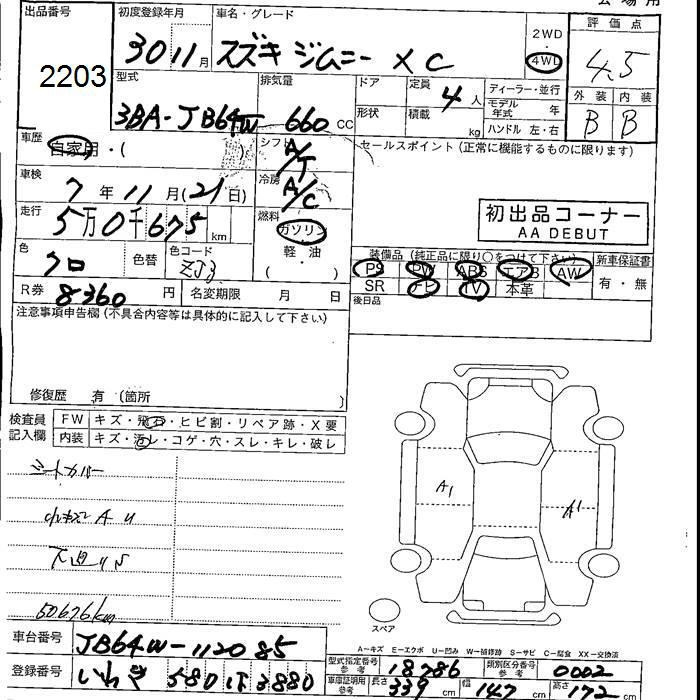 会場用
出品番号
2203
初度登録年月
30 11月
車名・グレード
スズキ ジムニー XC
2WD
4WD
評価点
4.5
型式
3BA-JB64W
排気量
660 CC
ドア
形状
定員
4人
積載
kg
ディーラー・並行
モデル年式 年
ハンドル 左・右
外装 内装
B B
車歴
自家用・( )
シフト
A/T
車検
7年11月(21日)
冷房
A/C
走行
5万0千675km
燃料
ガソリン
軽・油
( )
色
クロ
色替
色コード
ZJ3
R券
8360円
名変期限 月 日
セールスポイント(正常に機能するものに限ります)
初出品コーナー
AA DEBUT
装備品(純正品に限り○をつけて下さい)
新車保証書
PS PW ABS エアB AW
有・無
SR ナビ TV 本革
後日品
注意事項申告欄(不具合内容等は具体的に記入して下さい)
修復歴 有(箇所 )
検査員記入欄
FW キズ・飛石・ヒビ割・リペア跡・X要
内装 キズ・汚レ・コゲ・穴・スレ・キレ・破レ
シートカバー
小キズ A U
下廻りS
50676km
A1
A1
スペア
A-キズ E-エクボ U-凹み W-補修跡 S-サビ C-腐食 XX-交換済
車台番号
JB64W-112085
登録番号
いわき 580 は 3880
型式指定番号 参考
18786
類別区分番号 参考
0002
車庫証明用 参考
長さ 339 cm
幅 147 cm
高さ 172 cm